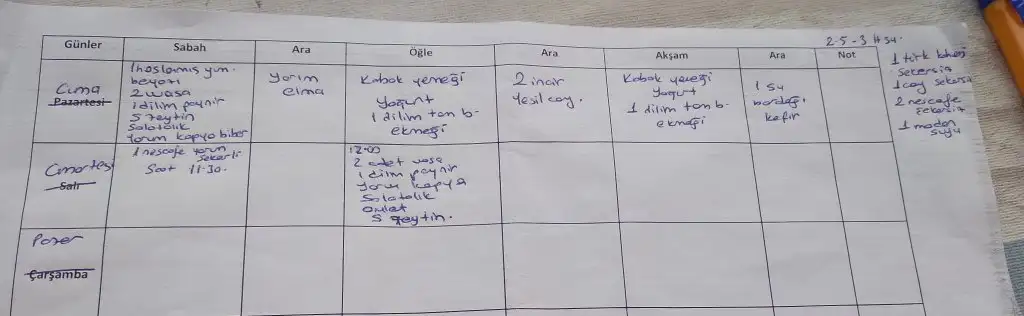 2-5-3
Günler Sabah Ara Öğle Ara Akşam Ara Not
Cuma
Pazartesi
1 haşlamış yum.
beyazı
2 wasa
1 dilim peynir
5 zeytin
Salatalık
Yarım kapya biber
Yarım
elma
Kabak yemeği
Yoğurt
1 dilim tam b.
ekmeği
2 incir
Yeşil çay.
Kabak yemeği
Yogurt
1 dilim tam b.
ekmeği
1 su
bardağı
kefir
1 türk kahvesi
Şekersiz
1 çay şekersiz
2 nescafe
şekersiz
1 maden
suyu
Cmartesi
Salı
1 nescafe yarım
şekerli
Saat 11.30.
12:00
2 adet wasa
1 dilim peynir
Yarım kapya
Salatalık
Omlet
5 zeytin.
Pazar
Çarşamba